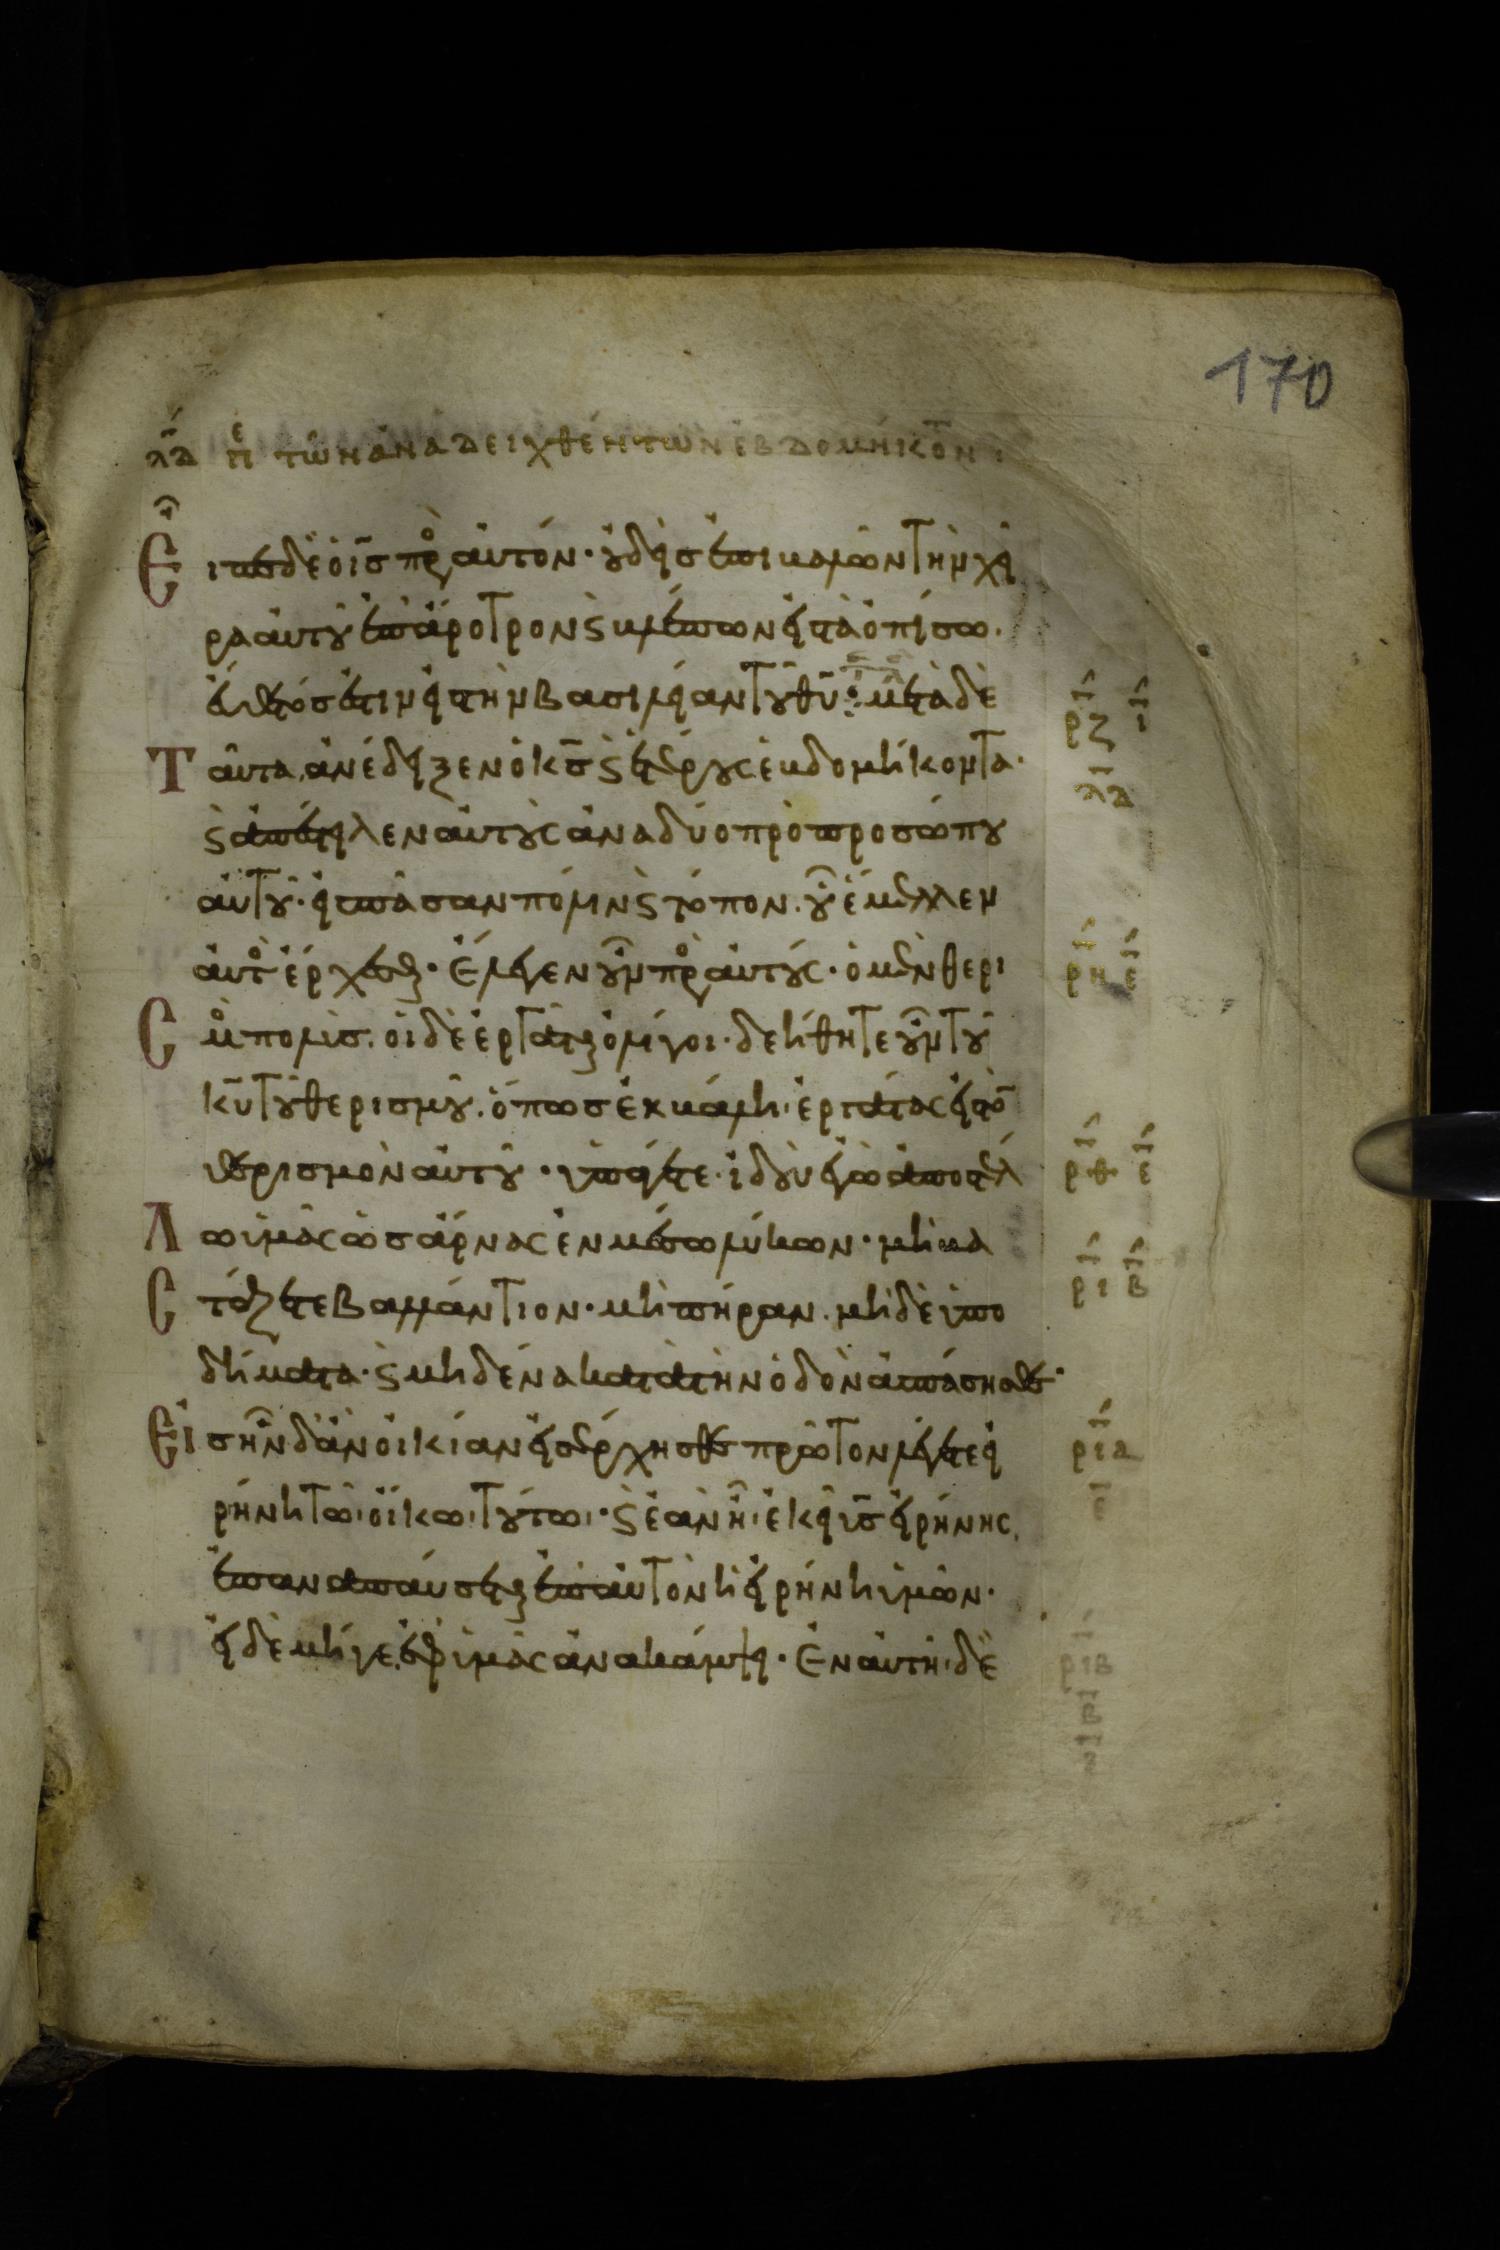 170
λδ πε τῶν ἀναδειχθέντων ἑβδομήκοντ :
Εἶπε δὲ ὁ ις πρὸς αὐτόν· οὐδεὶς ἐπιβαλὼν τὴν χεῖ
ρα αὐτοῦ ἐπ' ἄροτρον ϛ βλέπων εἰς τὰ ὀπίσω·
εὔθετός ἐστιν εἰς τὴν βασιλείαν τοῦ θυ: μετὰ δὲ
ταῦτα, ἀνέδειξεν ὁ κς ϛ ἑτέρους ἑβδομήκοντα·
ϛ ἀπέστειλεν αὐτοὺς ἀνὰ δύο πρὸ προσώπου
αὐτοῦ· εἰς πᾶσαν πόλιν ϛ τόπον. οὗ ἔμελλεν
αὐτὸς ἔρχεσθαι· Ἔλεγεν οὖν πρὸς αὐτούς· ὁ μὲν θερι
σμὸς πολύς. οἱ δὲ ἐργάται ὀλίγοι· δεήθητε οὖν τοῦ
κυ τοῦ θερισμοῦ. ὅπως ἐκβάλῃ ἐργάτας εἰς τὸ
θερισμὸν αὐτοῦ· ὑπάγετε· ἰδοὺ ἐγὼ ἀποστέλ
λω ὑμᾶς ὡς ἄρνας ἐν μέσῳ λύκων· μὴ βα
στάζετε βαλλάντιον· μὴ πήραν. μηδὲ ὑπο
δήματα· ϛ μηδένα κατὰ τὴν ὁδὸν ἀσπάσησθε·
Εἰς ἣν δ' ἂν οἰκίαν εἰσέρχησθε πρῶτον λέγετε εἰ
ρήνη τῶι οἴκωι τούτωι· ϛ ἐὰν ἦι ἐκεῖ υς εἰρήνης,
ἐπαναπαύσεται ἐπ' αὐτὸν ἡ εἰρήνη ὑμῶν·
εἰ δὲ μήγε, ἐφ' ὑμᾶς ἀνακάμψει· Ἐν αὐτῆι δὲ
ρζ ι
λδ
ρη ε
ρθ ε
ρι β
ρια
ι
ριβ
β